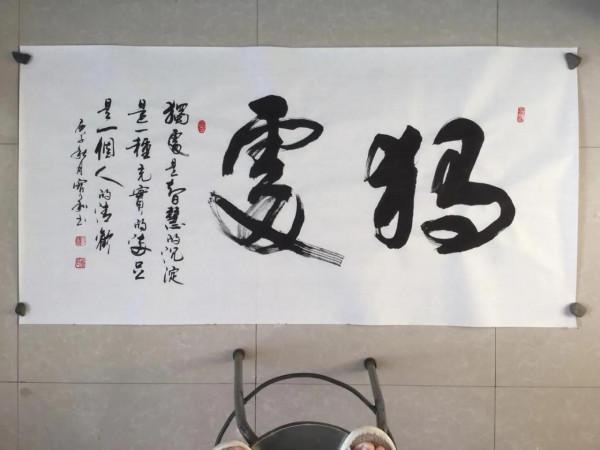 獨處
獨處是智慧的沉淀
是一種充實的
是一個人的清歡
庚子秋月 书